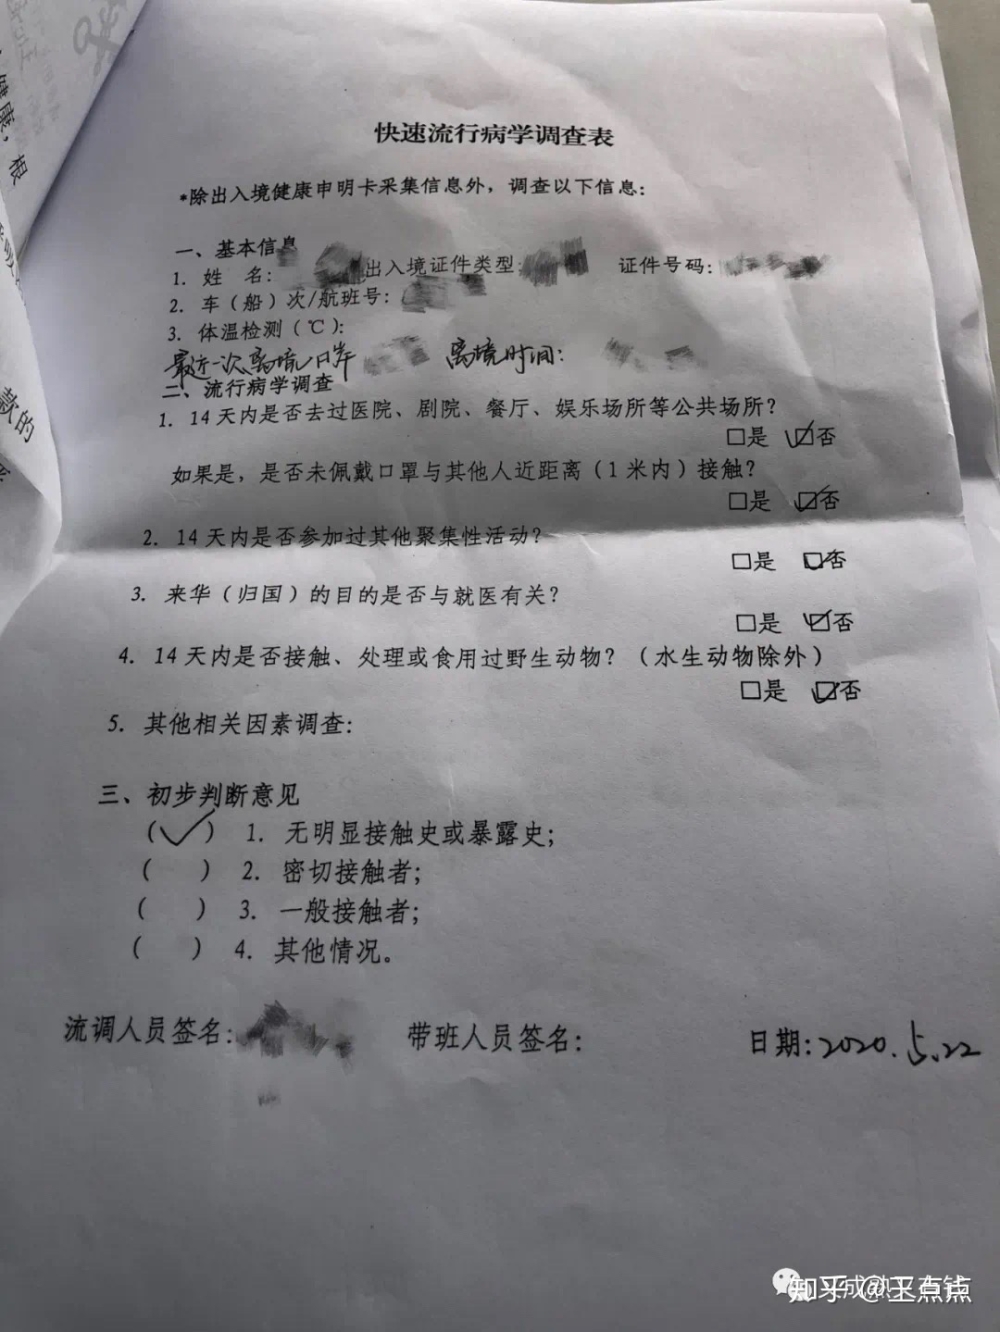 健康，根
款的
快速流行病学调查表
*除出入境健康申明卡采集信息外，调查以下信息：
一、基本信息
1. 姓 名： 出入境证件类型： 证件号码：
2. 车（船）次/航班号：
3. 体温检测（℃）：
最近一次离境口岸 离境时间：
二、流行病学调查
1. 14天内是否去过医院、剧院、餐厅、娱乐场所等公共场所？
□是 ☑否
如果是，是否未佩戴口罩与其他人近距离（1米内）接触？
□是 ☑否
2. 14天内是否参加过其他聚集性活动？
□是 ☑否
3. 来华（归国）的目的是否与就医有关？
□是 ☑否
4. 14天内是否接触、处理或食用过野生动物？（水生动物除外）
□是 ☑否
5. 其他相关因素调查：
三、初步判断意见
（✓）1. 无明显接触史或暴露史；
（ ）2. 密切接触者；
（ ）3. 一般接触者；
（ ）4. 其他情况。
流调人员签名： 带班人员签名： 日期：2020.5.22
知乎 @王点点